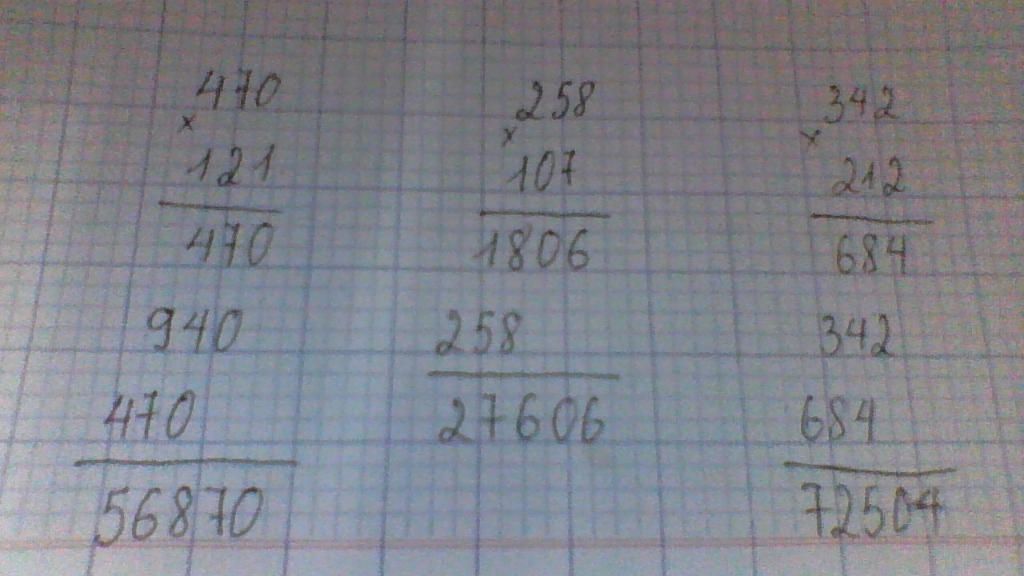 470
×
121
470
940
470
56870
258
×
107
1806
258
27606
342
×
212
684
342
684
72504